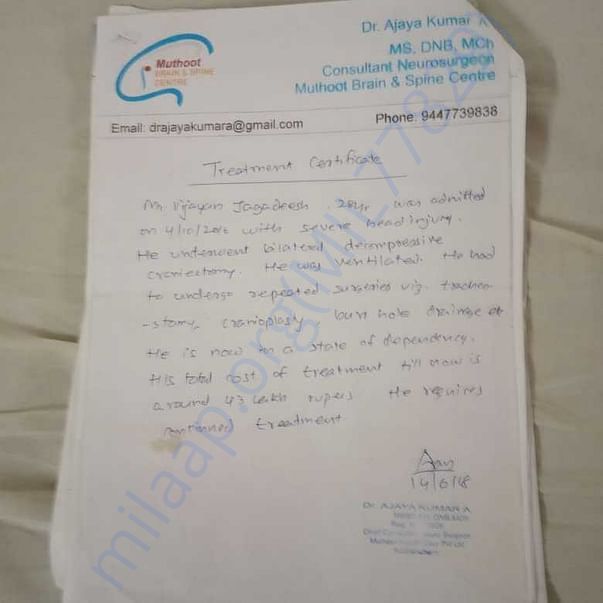 Muthoot
BRAIN & SPINE
CENTRE
Dr. Ajaya Kumar A
MS. DNB, MCh
Consultant Neurosurgeon
Muthoot Brain & Spine Centre
Email: drajayakumara@gmail.com
Phone: 9447739838
Treatment Certificate
Mr. Vijayan Jagadeesh, 28yr, was admitted
on 4/10/2016 with severe head injury.
He underwent bilateral decompressive
craniectomy. He was ventilated. He had
to undergo repeated surgeries viz. tracheo
-stomy, cranioplasty burr hole drainage etc
He is now in a state of dependency.
His total cost of treatment till now is
around 43 lakh rupees He requires
continued treatment
14/6/18
Dr. AJAYA KUMAR A
milaap.org